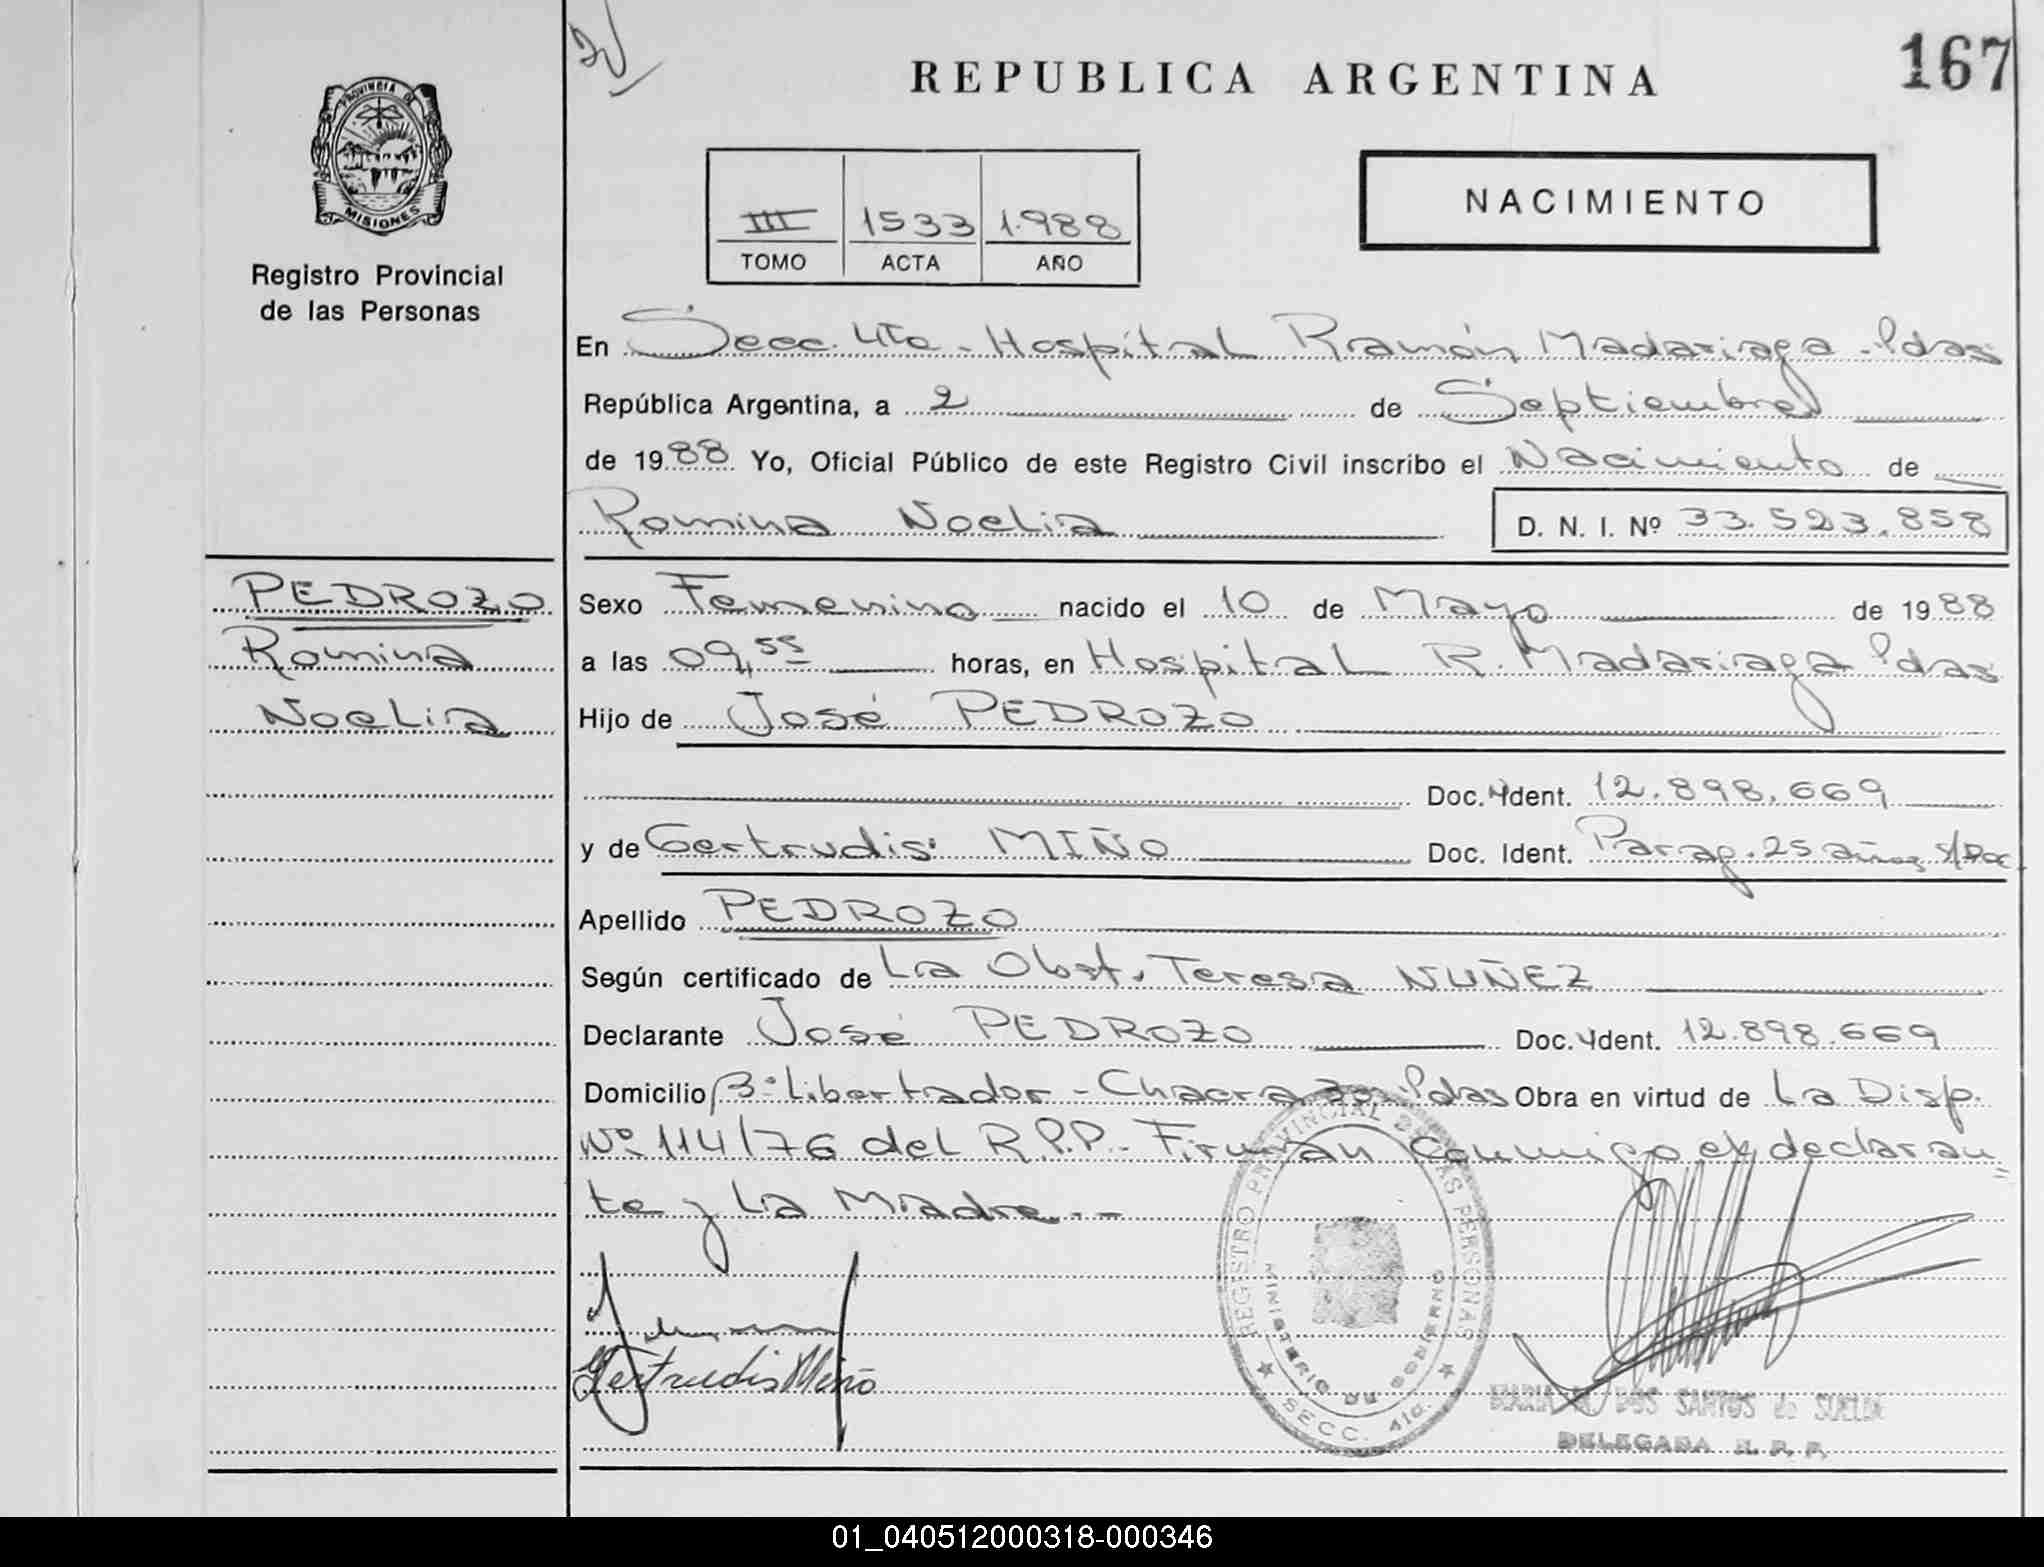 167
REPUBLICA ARGENTINA
PROVINCIA DE
MISIONES
Registro Provincial
de las Personas
NACIMIENTO
III 1533 1.988
TOMO ACTA AÑO
En Secc. 4ta - Hospital Ramón Madariaga - Pdas
República Argentina, a 2 de Septiembre
de 1988 Yo, Oficial Público de este Registro Civil inscribo el Nacimiento de
Romina Noelia D. N. I. Nº 33.523.858
PEDROZO
Romina
Noelia
Sexo Femenino nacido el 10 de Mayo de 1988
a las 09,55 horas, en Hospital R. Madariaga Pdas
Hijo de José PEDROZO
Doc. Ident. 12.898.669
y de Gertrudis MIÑO Doc. Ident. Parag. 25 años s/Doc.
Apellido PEDROZO
Según certificado de La Obst. Teresa NUÑEZ
Declarante José PEDROZO Doc. Ident. 12.898.669
Domicilio Bº Libertador - Chacra Pdas Obra en virtud de La Disp.
Nº 114/76 del R.P.P.- Firman conmigo el declaran=
te y La Madre.-
Gertrudis Miño
REGISTRO PROVINCIAL DE LAS PERSONAS
MINISTERIO DE GOBIERNO
SECC. 4ta.
MARIA DOS SANTOS de
DELEGADA R. P. P.
01_040512000318-000346